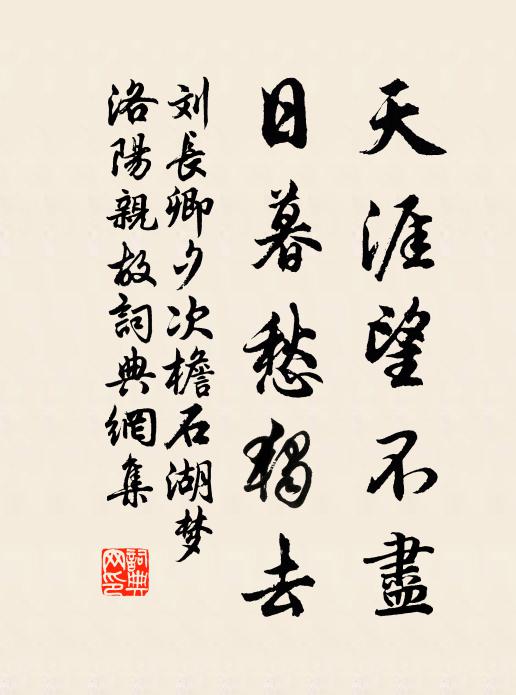 天涯望不盡
日暮愁獨去
刘長卿夕次檐石湖梦
洛陽親故詞典網集
詞典
网印